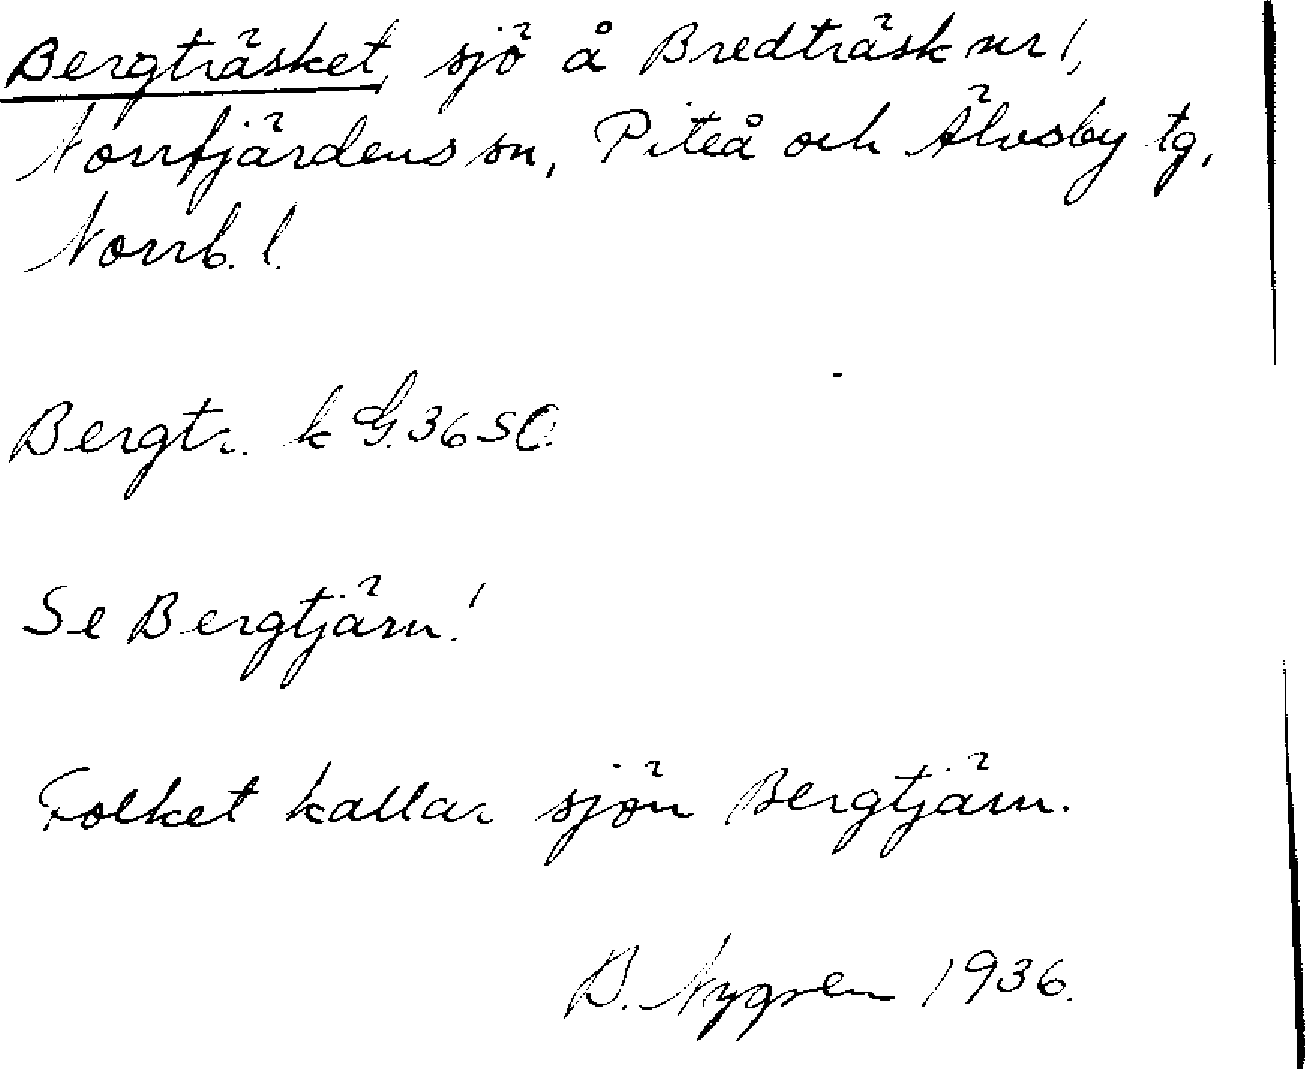 Bergträsket, sjö å Bredträsk nr 1,
Norrfjärdens sn, Piteå och Älvsby tg,
Norrb. l.
Bergtr. k G. 36 SO.
Se Bergtjärn!
Folket kallar sjön Bergtjärn.
B. Nygren 1936.